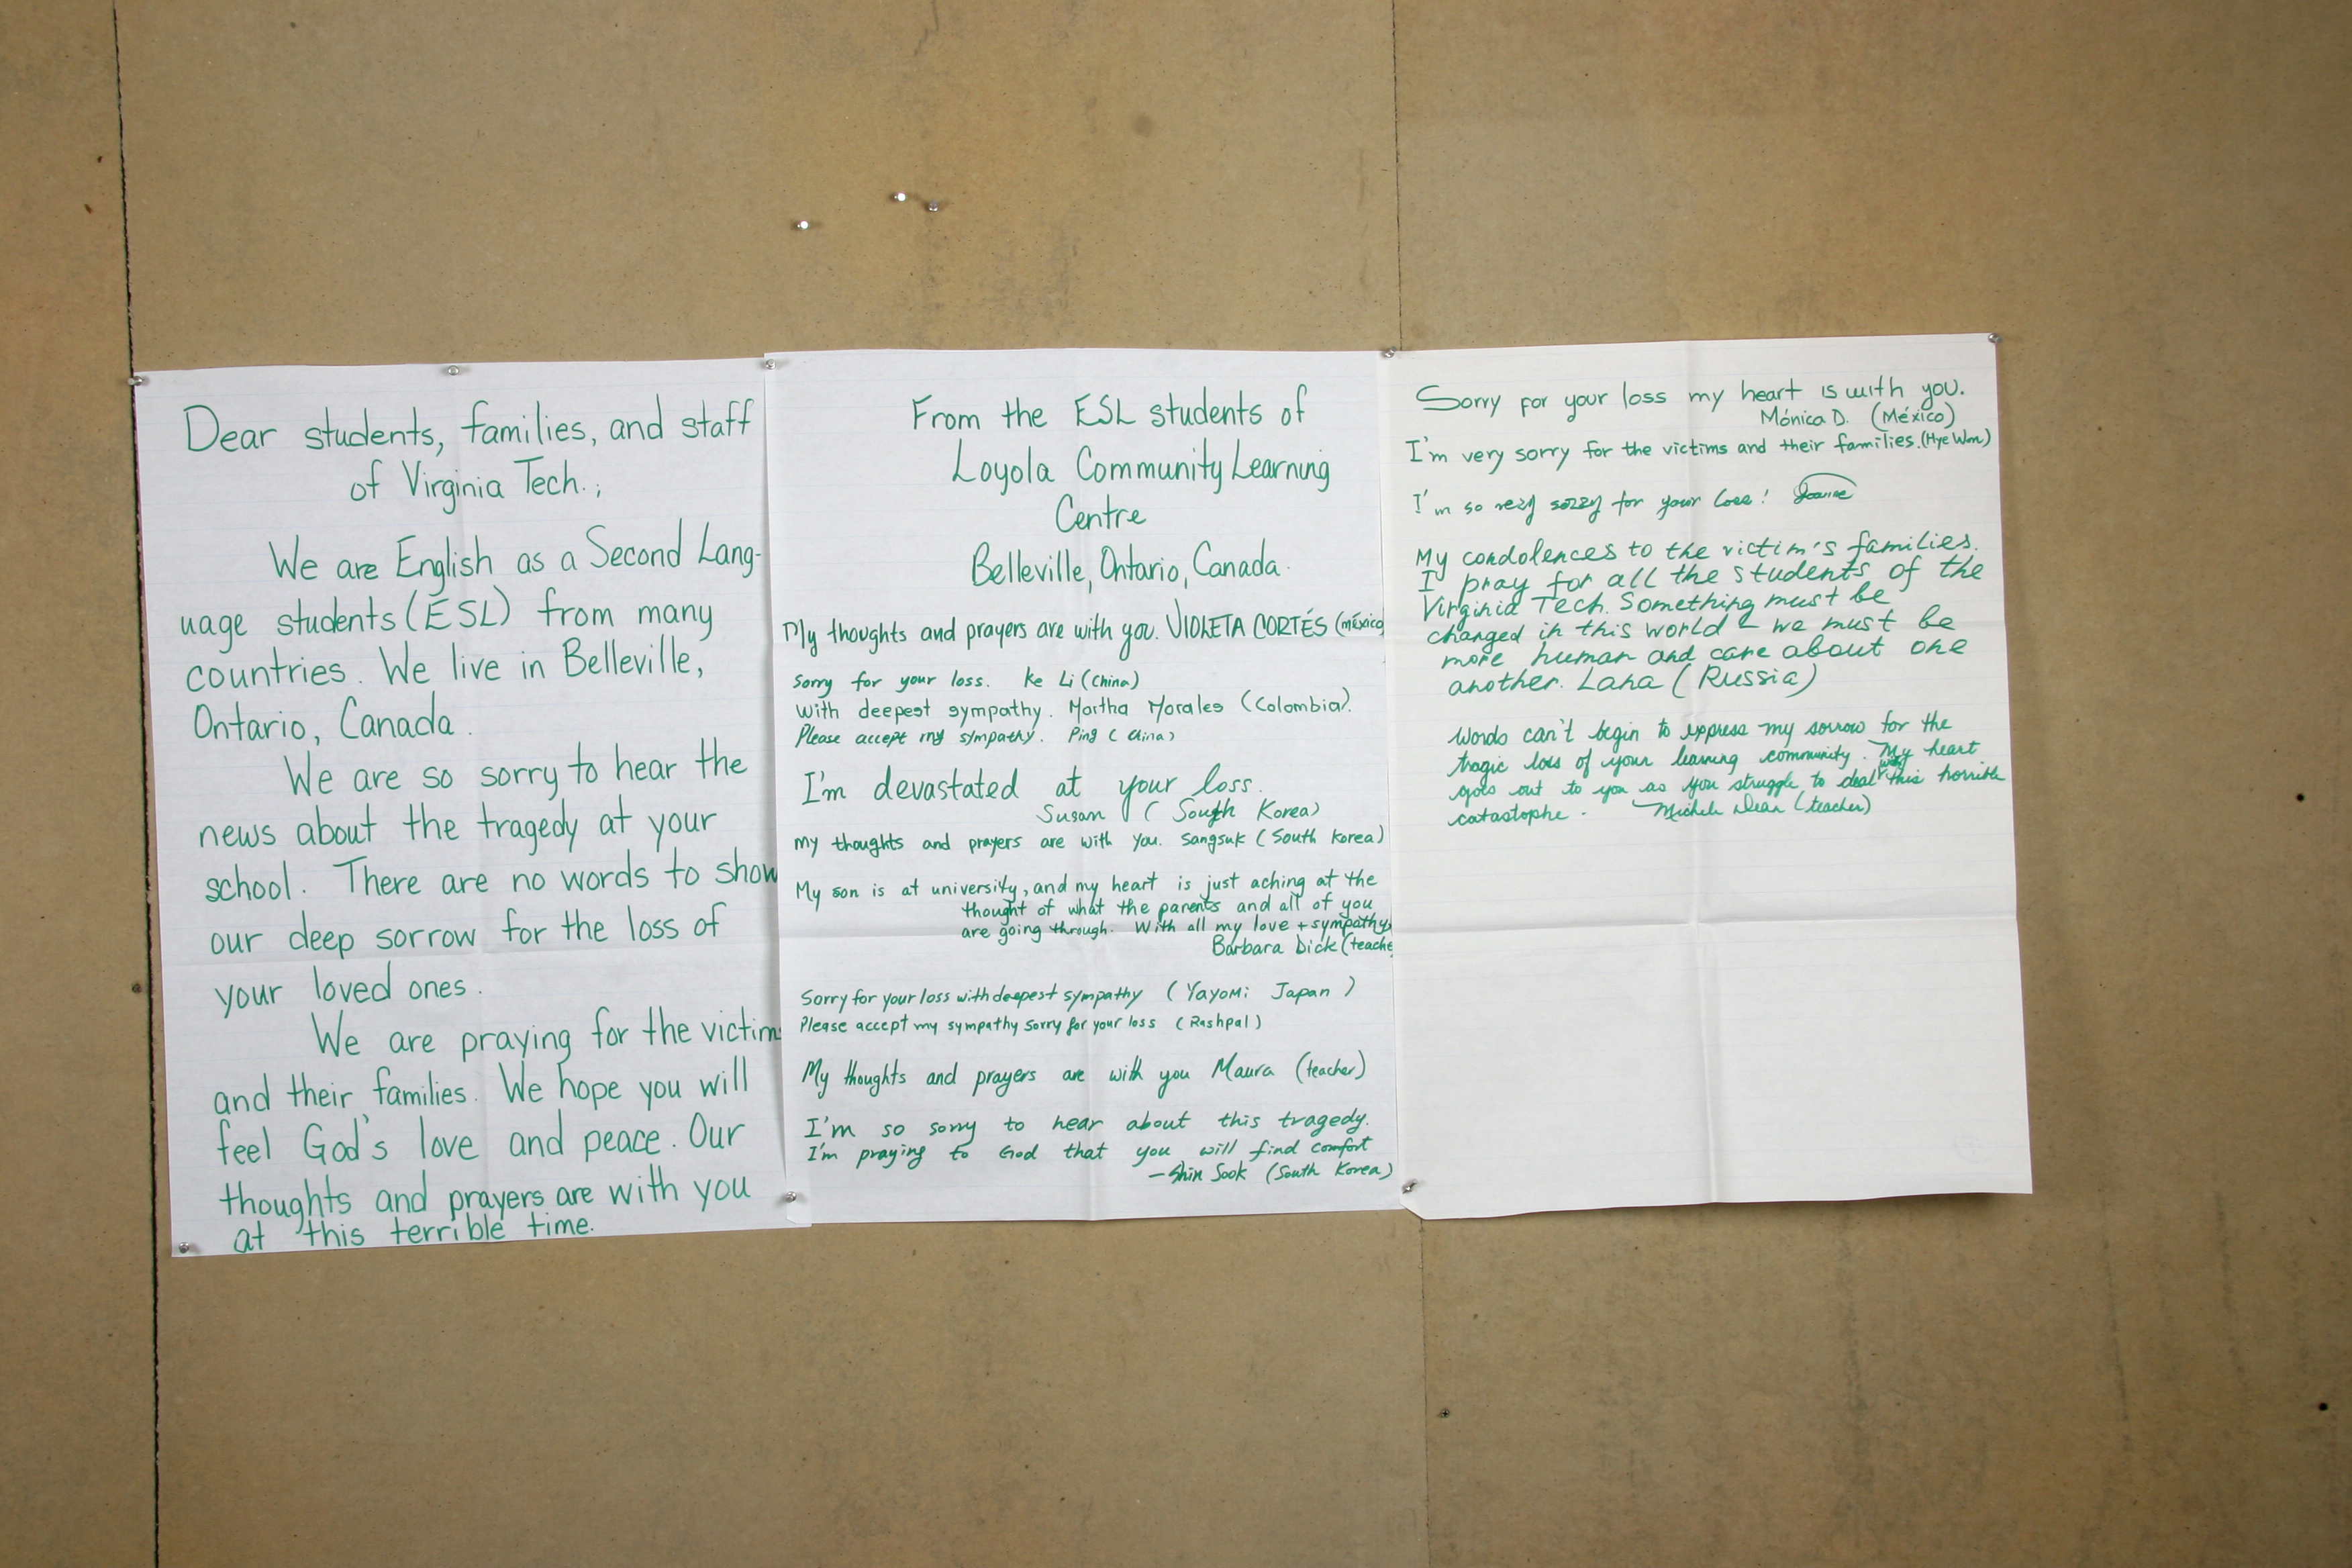 Dear students, families, and staff
of Virginia Tech.;
We are English as a Second Lang-
uage students (ESL) from many
countries. We live in Belleville,
Ontario, Canada.
We are so sorry to hear the
news about the tragedy at your
school. There are no words to show
our deep sorrow for the loss of
your loved ones.
We are praying for the victims
and their families. We hope you will
feel God's love and peace. Our
thoughts and prayers are with you
at this terrible time.
From the ESL students of
Loyola Community Learning
Centre
Belleville, Ontario, Canada.
My thoughts and prayers are with you. VIOLETA CORTÉS (méxico
Sorry for your loss. Ke Li (China)
With deepest sympathy. Martha Morales (Colombia).
Please accept my sympathy. Ping (China)
I'm devastated at your loss.
Susan (South Korea)
My thoughts and prayers are with you. Sangsuk (South Korea)
My son is at university, and my heart is just aching at the
thought of what the parents and all of you
are going through. With all my love + sympathy,
Barbara Dick (teache
Sorry for your loss with deepest sympathy (YaYoMi Japan)
Please accept my sympathy sorry for your loss (Rashpal)
My thoughts and prayers are with you Maura (teacher)
I'm so sorry to hear about this tragedy.
I'm praying to God that you will find comfort
- Shin Sook (South Korea)
Sorry for your loss my heart is with you.
Mónica D. (México)
I'm very sorry for the victims and their families. (Hye Won)
I'm so very sorry for your loss!
My condolences to the victim's families.
I pray for all the students of the
Virginia Tech. Something must be
changed in this world - we must be
more human and care about one
another. Lana (Russia)
Words can't begin to express my sorrow for the
tragic loss of your learning community. My heart
goes out to you as you struggle to deal with this horrible
catastophe. Michele Dean (teacher)